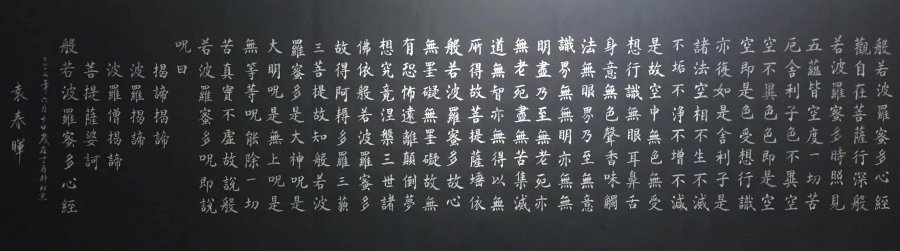 般若波羅蜜多心經
觀自在菩薩行深般
若波羅蜜多時照見
五蘊皆空度一切苦
厄舍利子色不異空
空不異色色即是空
空即是色受想行識
亦復如是舍利子是
諸法空相不生不滅
不垢不淨不增不減
是故空中無色無受
想行識無眼耳鼻舌
身意無色聲香味觸
法無眼界乃至無意
識界無無明亦無無
明盡乃至無老死亦
無老死盡無苦集滅
道無智亦無得以無
所得故菩提薩埵依
般若波羅蜜多故心
無罣礙無罣礙故無
有恐怖遠離顛倒夢
想究竟涅槃三世諸
佛依般若波羅蜜多
故得阿耨多羅三藐
三菩提故知般若波
羅蜜多是大神呪是
大明呪是無上呪是
無等等呪能除一切
苦真實不虛故說般
若波羅蜜多呪即說
呪曰
揭諦揭諦
波羅揭諦
波羅僧揭諦
菩提薩婆訶
般若波羅蜜多心經
年六月
袁春暉